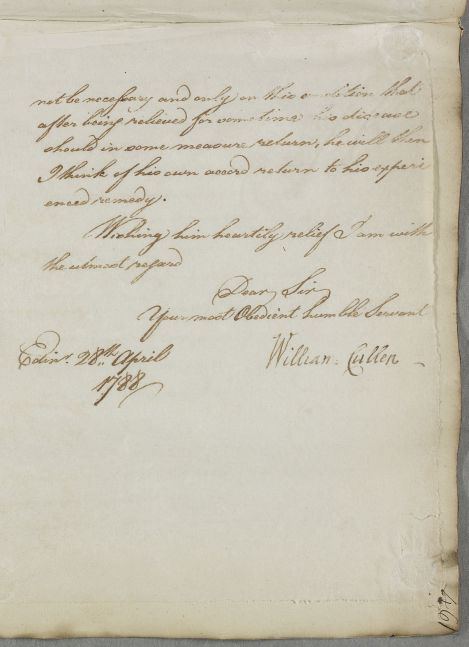 not be necessary and only on this condition that
after being relieved for sometime his disease
should in some measure return, he will then
I think of his own accord return to his experi
enced remedy.
Wishing him heartily relief I am with
the utmost regard
Dear Sir
Your most Obedient humble Servant
Edinr. 28th April
1788
William Cullen